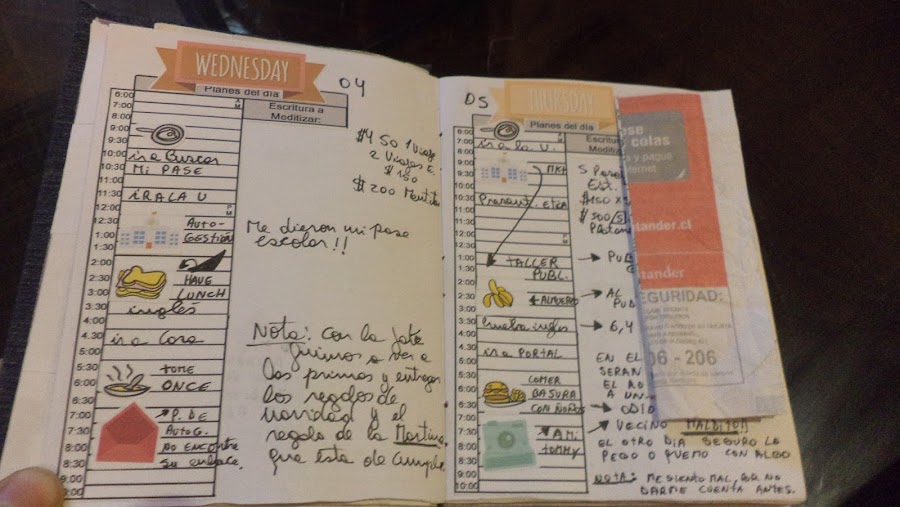 WEDNESDAY
04
Planes del día
Escritura a
Meditizar:
6:00
7:00
8:00
9:00
9:30
10:00
10:30
11:00
11:30
12:00
12:30
1:00
1:30
2:00
2:30
3:00
3:30
4:00
4:30
5:00
5:30
6:00
6:30
7:00
7:30
8:00
8:30
9:00
ir a Buscar
MI PASE
IR A LA U
AUTO-
GESTIÓN
HAVE
LUNCH
inglés
ir a Casa
TOME
ONCE
P. DE
AUTOG.
NO ENCONTRÉ
su enlace.
$450 1 Viaje
2 Viajes E.
$150
$200
Me dieron mi pase
escolar!!
Nota: con la
fuimos a ver a
los primos y entregar
los regalos de
navidad y el
regalo de la Martina
que esta de cumple
05
THURSDAY
Planes del día
Escritu
Meditiz
6:00
7:00
8:00
9:00
9:30
10:00
10:30
11:00
11:30
12:00
12:30
1:00
1:30
2:00
2:30
3:00
3:30
4:00
4:30
5:00
5:30
6:00
6:30
7:00
7:30
8:00
8:30
9:00
ir a la U.
MKT
etica
TALLER
PUBL.
ALMUERZO
Prueba inglés
ir a PORTAL
COMER
BASURA
CON ÑOÑOS
A MI
TOMMY
5 Pasa
Est.
$150 x
$500
PUB
AL
PUB
6,4
EN EL
SERAN
EL RO
A UN
ODIO
VECINO MALDITOH
EL OTRO DIA SEGURO LA
PEGO O QUEMO CON ALGO
NOTA: ME SIENTO MAL, POR NO
DARME CUENTA ANTES.
ose
colas
o y pague
nternet
tander.cl
tander
EGURIDAD:
06 - 206